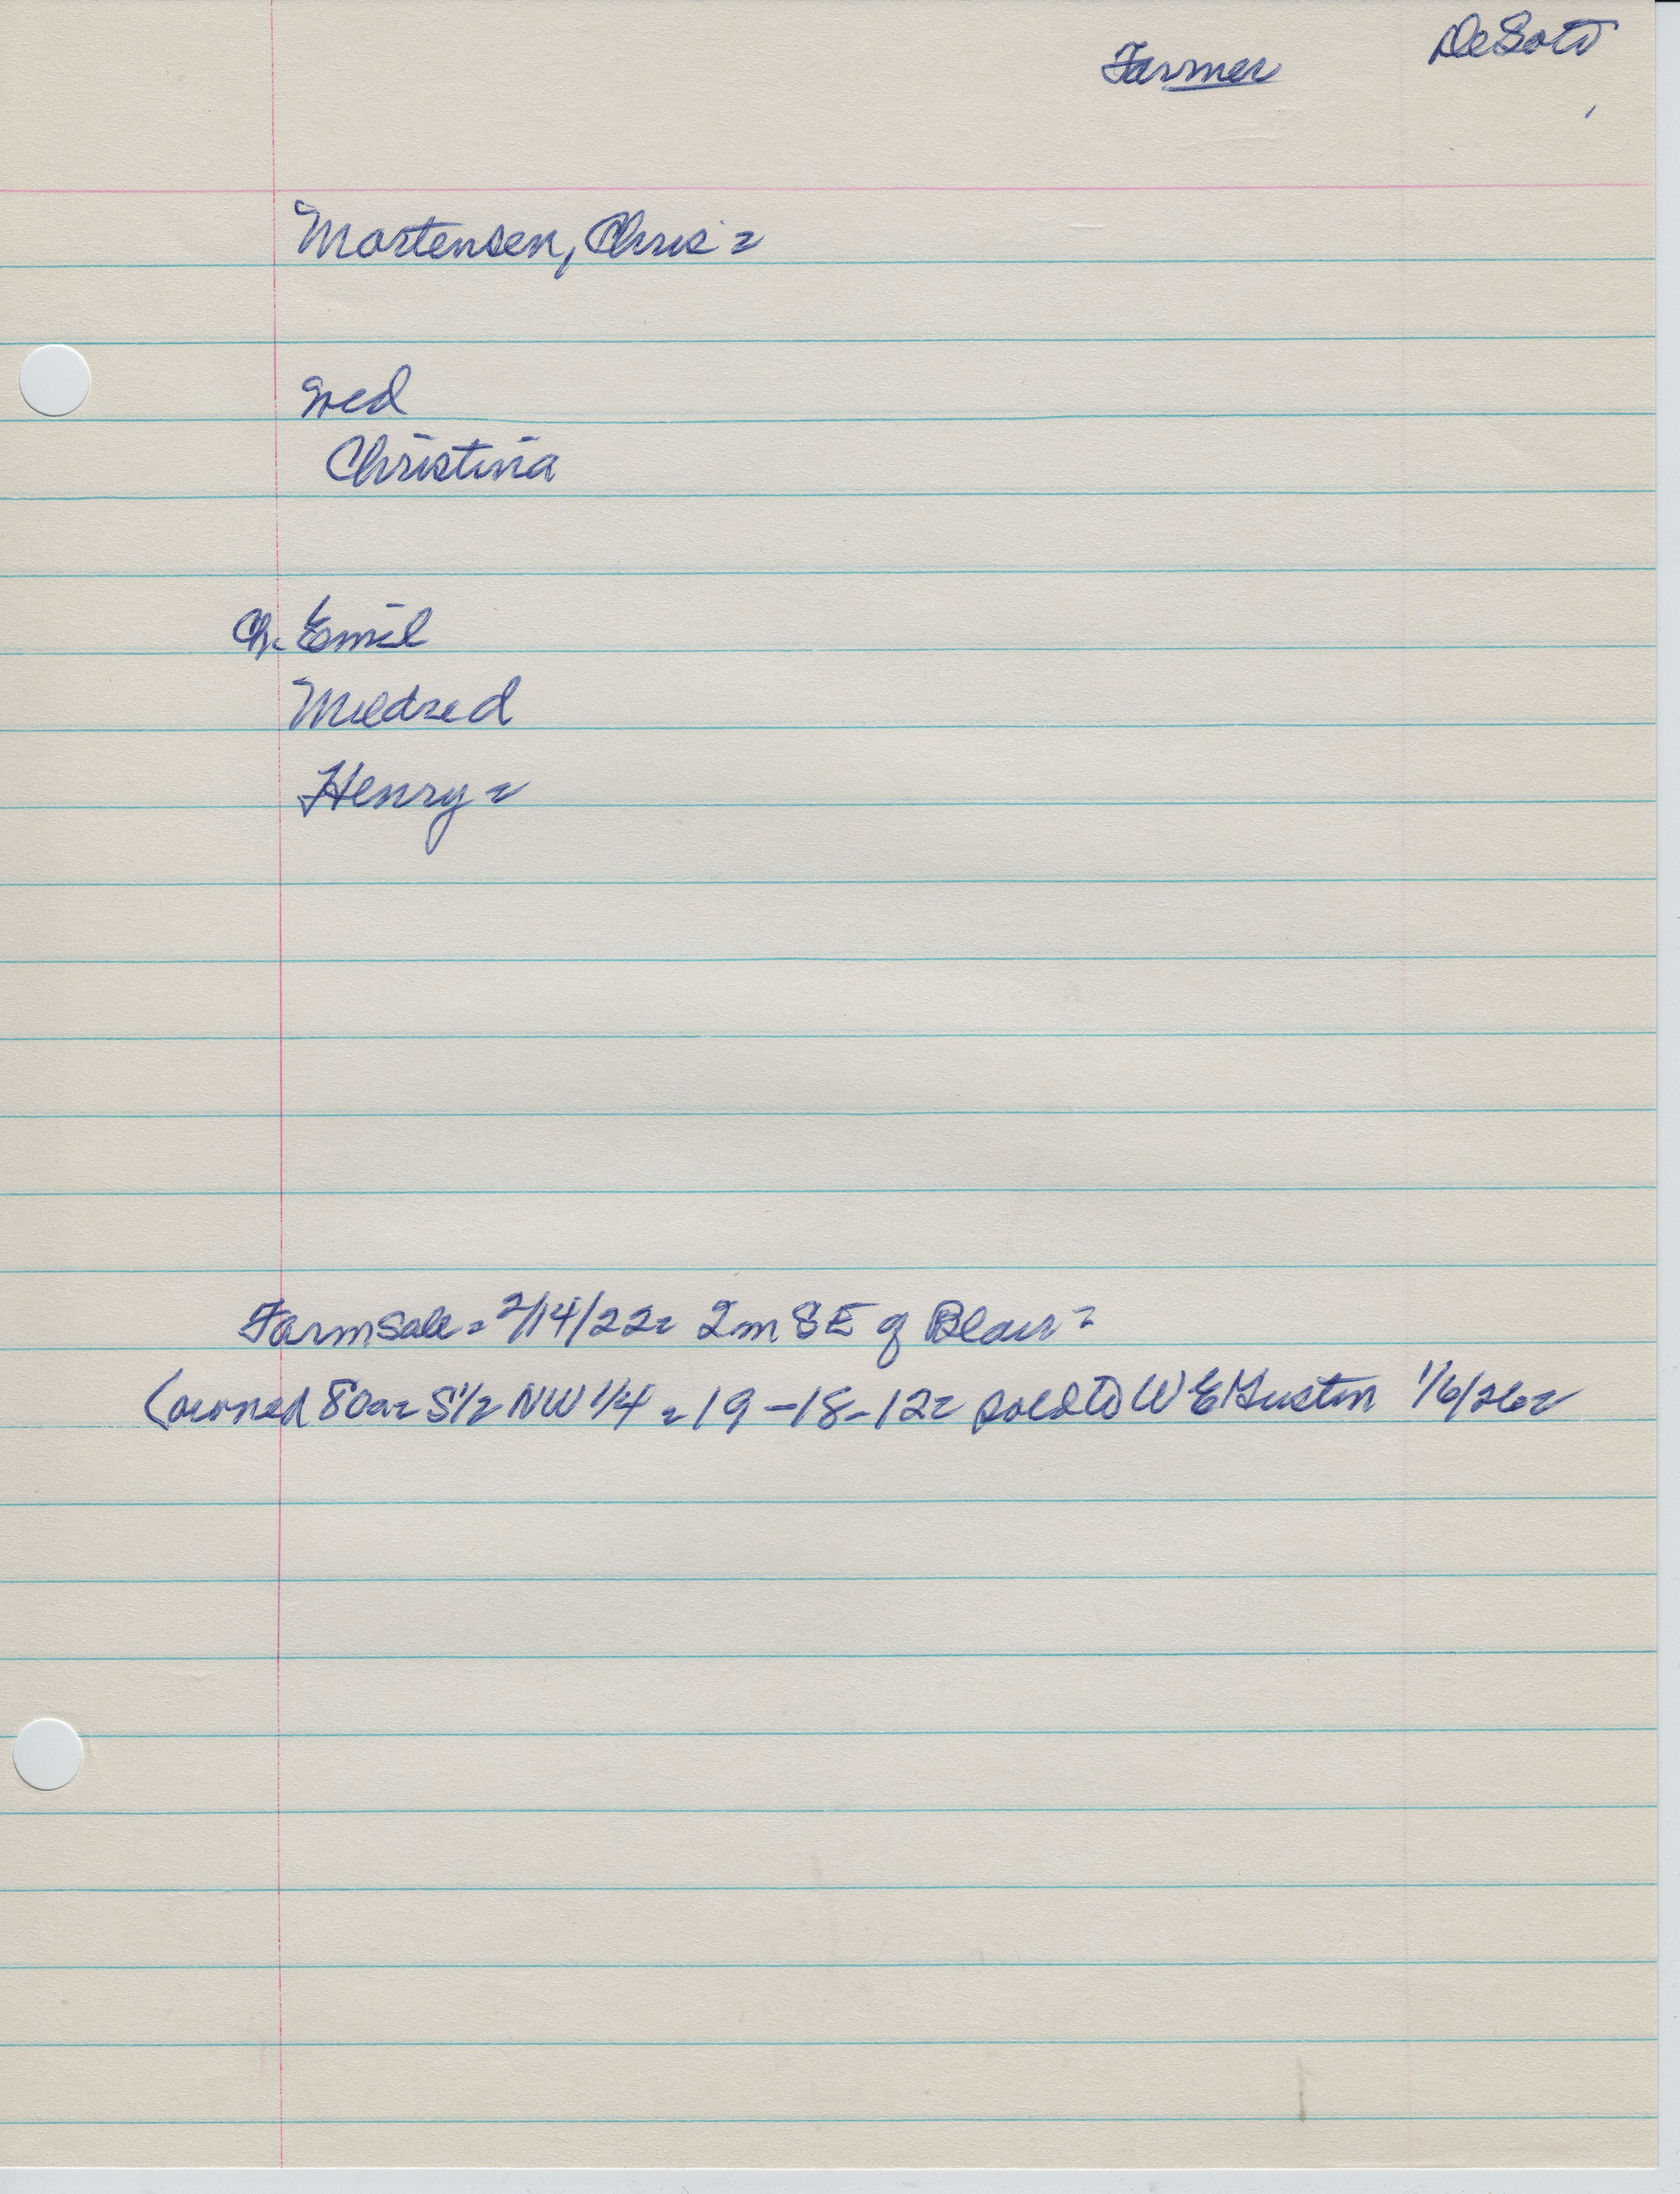 Farmer DeSoto
Mortensen, Chris =
Wed
Christina
Ch. Emil
Mildred
Henry =
Farm Sale = 2/14/22 = 2 m SE of Blair =
(owned 80a = S 1/2 NW 1/4 = 19-18-12 = sold to W E Gustin 1/6/26 =